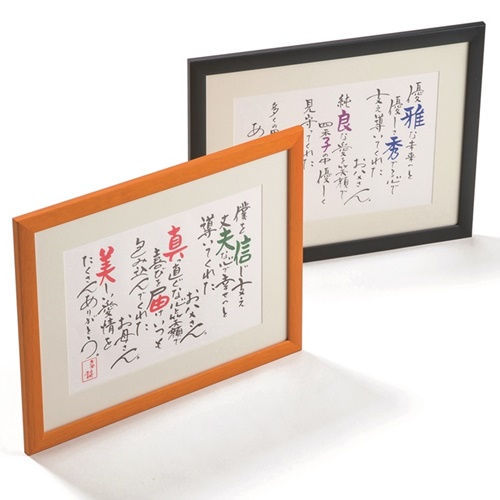 僕を信じ支え
丈夫な心で幸せへと
導いてくれた
お父さん。
真っ直ぐな心と笑顔で
喜びを届けいつも
包み込んでくれた
お母さん。
美しい愛情を
たくさんありがとう。
優雅な未来へと
優しさ秀でる心で
支え導いてくれた
お父さん。
純良な愛と笑顔で
四季子の中優しく
見守ってくれた